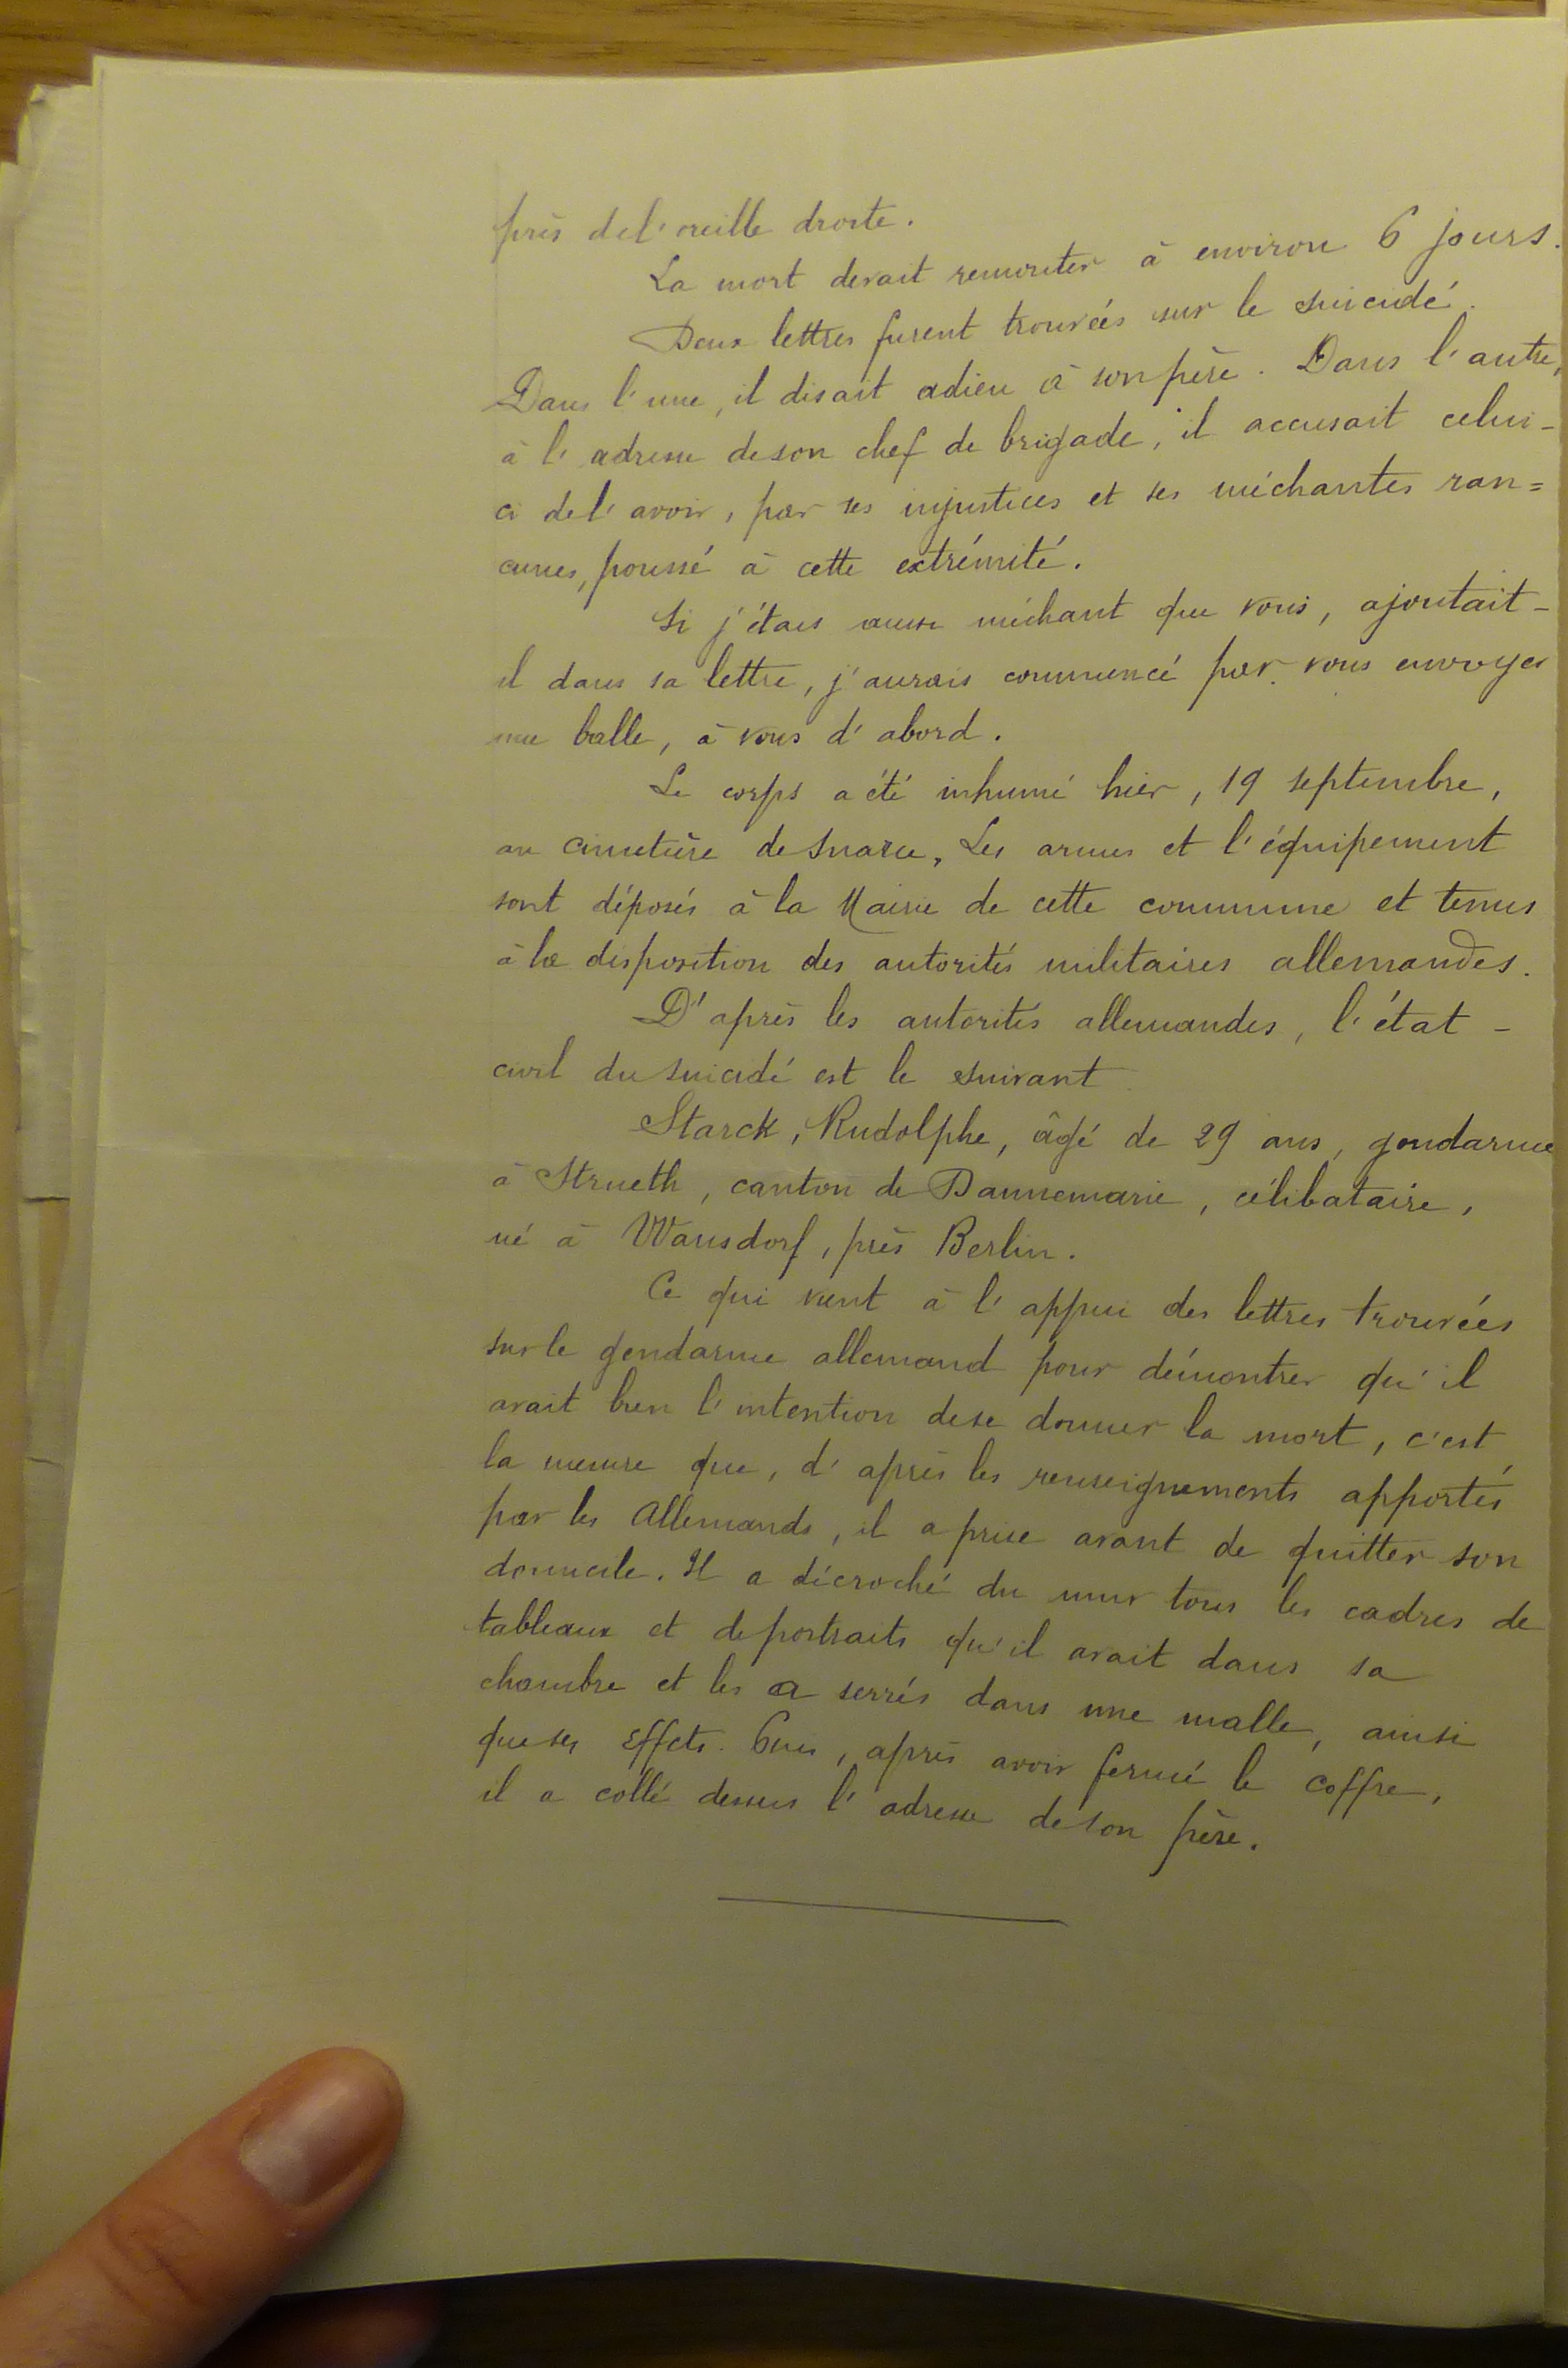 près de l'oreille droite.
La mort devait remonter à environ 6 jours.
Deux lettres furent trouvées sur le suicidé.
Dans l'une, il disait adieu à son père. Dans l'autre,
à l'adresse de son chef de brigade, il accusait celui-
ci de l'avoir, par ses injustices et ses méchantes ran=
cunes, poussé à cette extrémité.
Si j'étais aussi méchant que vous, ajoutait-
il dans sa lettre, j'aurais commencé par vous envoyer
une balle, à vous d'abord.
Le corps a été inhumé hier, 19 septembre,
au cimetière de Suarce. Les armes et l'équipement
sont déposés à la Mairie de cette commune et tenus
à la disposition des autorités militaires allemandes.
D'après les autorités allemandes, l'état-
civil du suicidé est le suivant
Starck, Rudolphe, âgé de 29 ans, gendarme
à Strueth, canton de Dannemarie, célibataire,
né à Wansdorf, près Berlin.
Ce qui vient à l'appui des lettres trouvées
sur le gendarme allemand pour démontrer qu'il
avait bien l'intention de se donner la mort, c'est
la mesure que, d'après les renseignements apportés
par les Allemands, il a prise avant de quitter son
domicile. Il a décroché du mur tous les cadres de
tableaux et de portraits qu'il avait dans sa
chambre et les a serrés dans une malle, ainsi
que ses effets. Puis, après avoir fermé le coffre,
il a collé dessus l'adresse de son père.